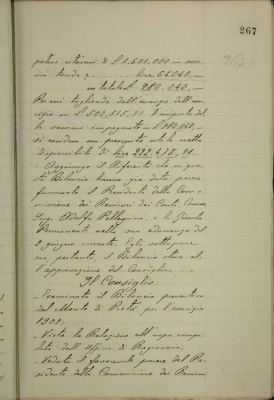 267
potere interinale di £ 1.601.000 -
lire 64.040, -
in totale £ 280.040, -
Perciò togliendo dall'avanzo dell'eser-
cizio in £ 502.515,21 l'importo del
le somme impegnate in £ 280.040, -
si residua un presente totale netto
disponibile di lire 222.475,21.
Aggiunge il Referente che su que-
sto Bilancio hanno già dato parere
favorevole il Presidente della Com-
missione dei Revisori dei Conti Comm.
Ing. Adolfo Pellegrini, e la Giunta
Permanente nella sua adunanza del
2 giugno corrente. Egli sottopone
ora, pertanto, il Bilancio stesso al-
l'approvazione del Consiglio.
Il Consiglio:
- Esaminato il Bilancio preventivo
del Monte di Pietà per l'esercizio
- Vista la Relazione all'uopo compi-
lata dall'Ufficio di Ragioneria;
- Veduto il favorevole parere del Pre-
sidente della Commissione dei Revisori